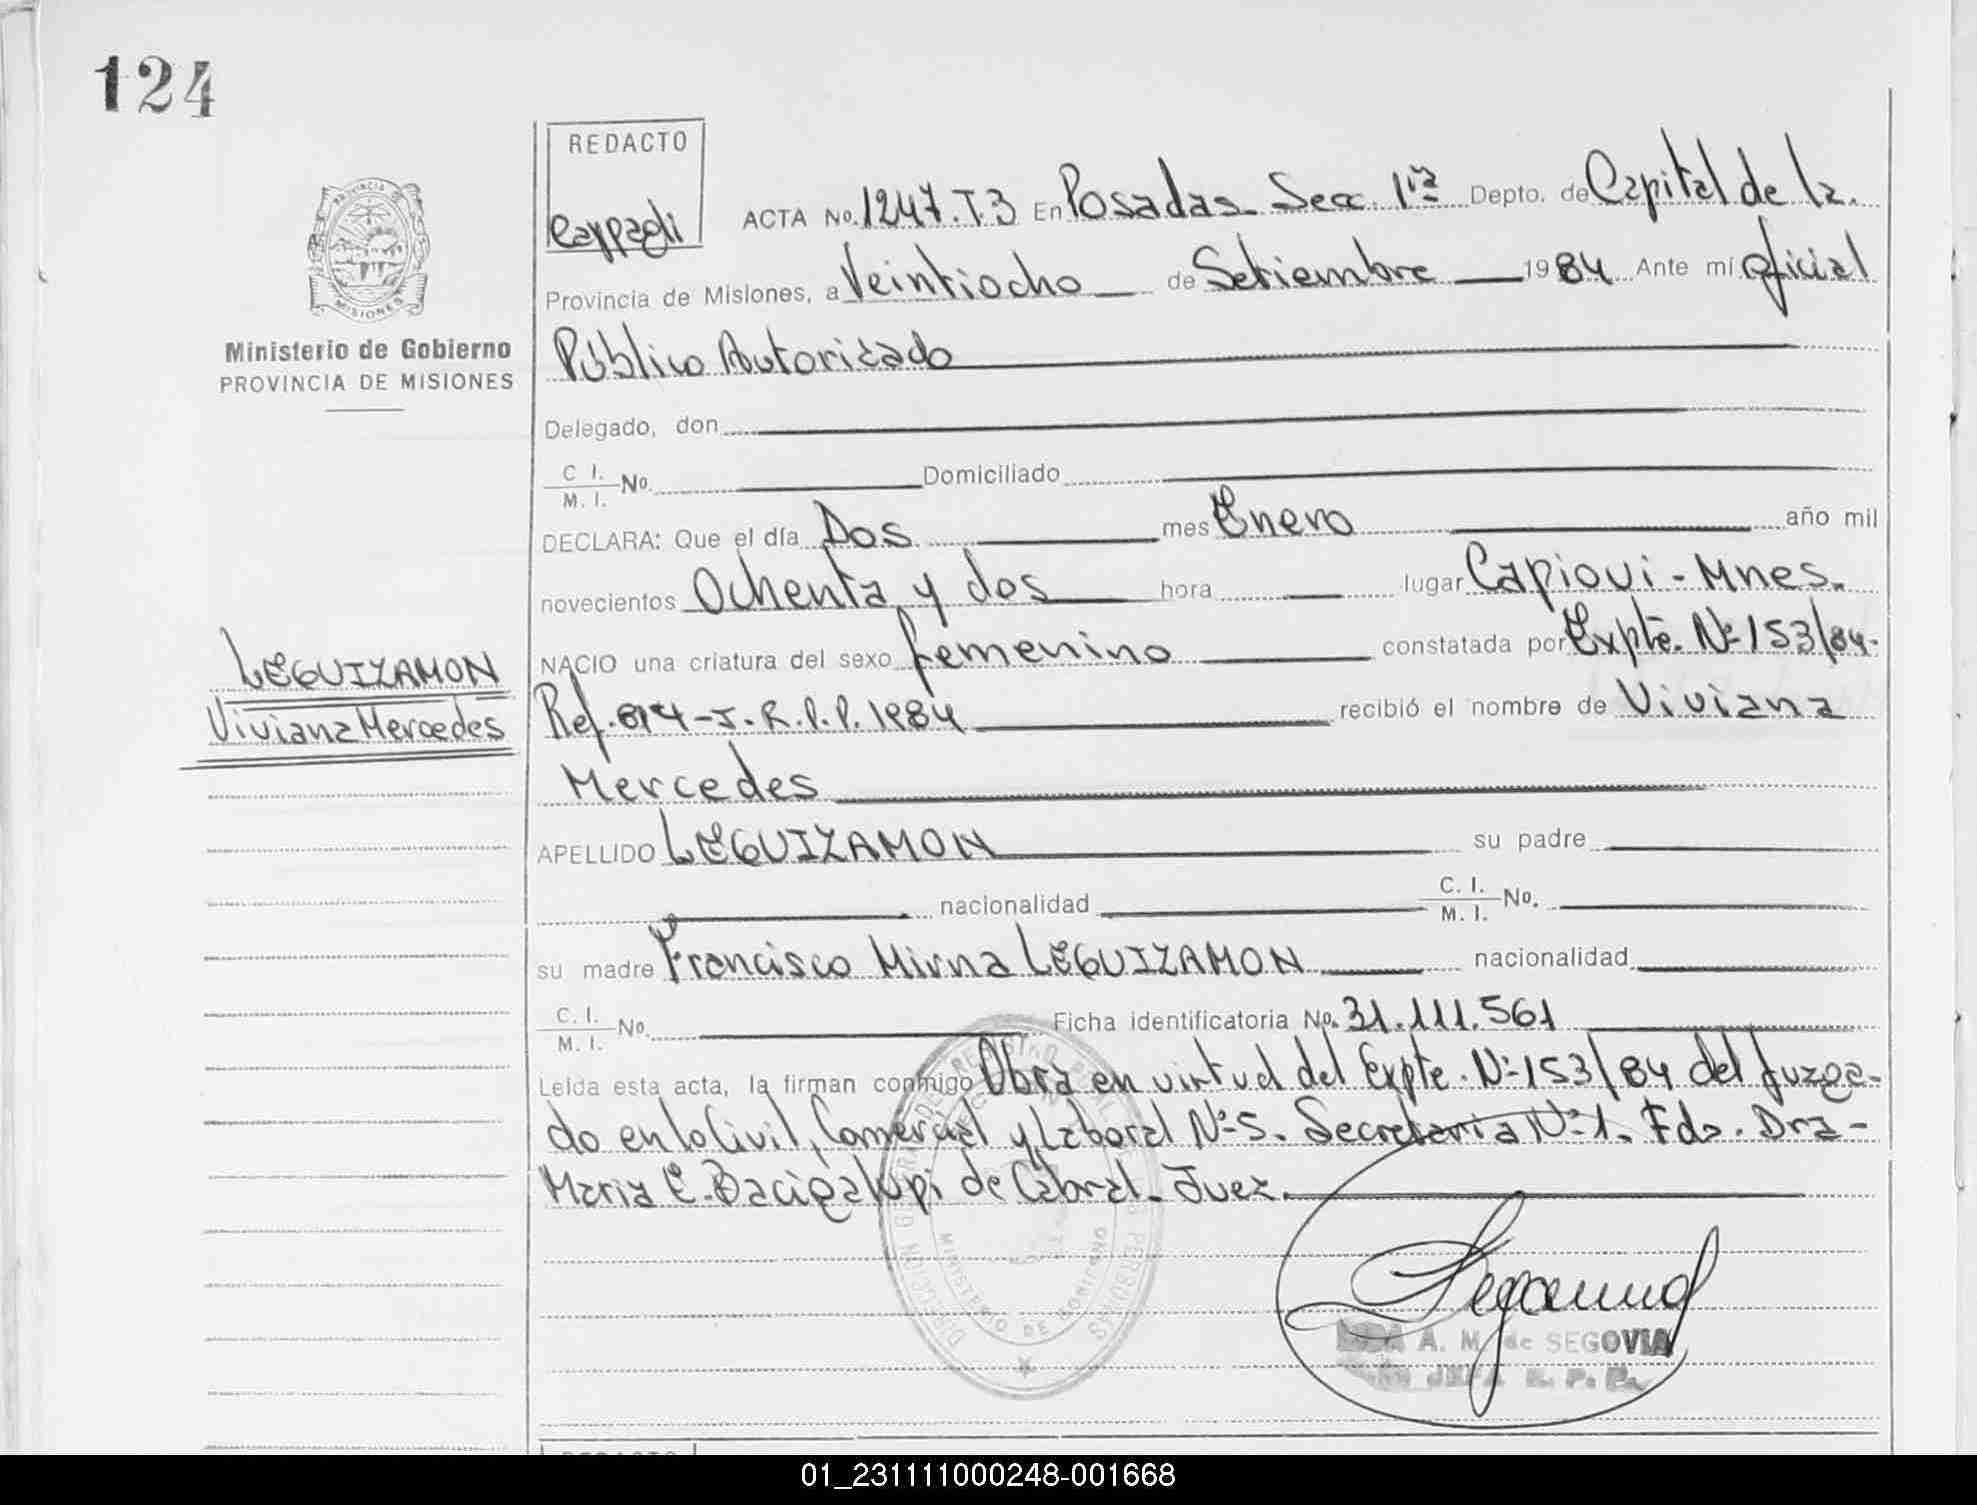 124
REDACTO
PROVINCIA DE MISIONES
Ministerio de Gobierno
PROVINCIA DE MISIONES
ACTA No. 1247.T.3 En Posadas Secc. 1ra Depto. de Capital de la
Provincia de Misiones, a Veintiocho de Setiembre 1984 Ante mi Oficial
Público Autorizado
Delegado, don
C. I. M. I. No. Domiciliado
DECLARA: Que el día Dos mes Enero año mil
novecientos Ochenta y dos hora lugar Capiovi - Mnes.
NACIO una criatura del sexo femenino constatada por Expte. Nº 153/84-
LEGUIZAMON
Viviana Mercedes
Ref. 814-J.R.P.P. 1984 recibió el nombre de Viviana
Mercedes
APELLIDO LEGUIZAMON su padre
nacionalidad C. I. M. I. No.
su madre Francisco Mirna LEGUIZAMON nacionalidad
C. I. M. I. No. Ficha identificatoria No. 31.111.561
Leída esta acta, la firman conmigo Obra en virtud del Expte. Nº 153/84 del Juzga-
do en lo Civil, Comercial y Laboral Nº 5. Secretaria Nº 1. Fdo. Dra-
Maria E. Bacigalupi de Cabral. Juez.
MINISTERIO DE GOBIERNO
A. M. de SEGOVIA
JEFA R. P. P.
REDACTO
01_231111000248-001668